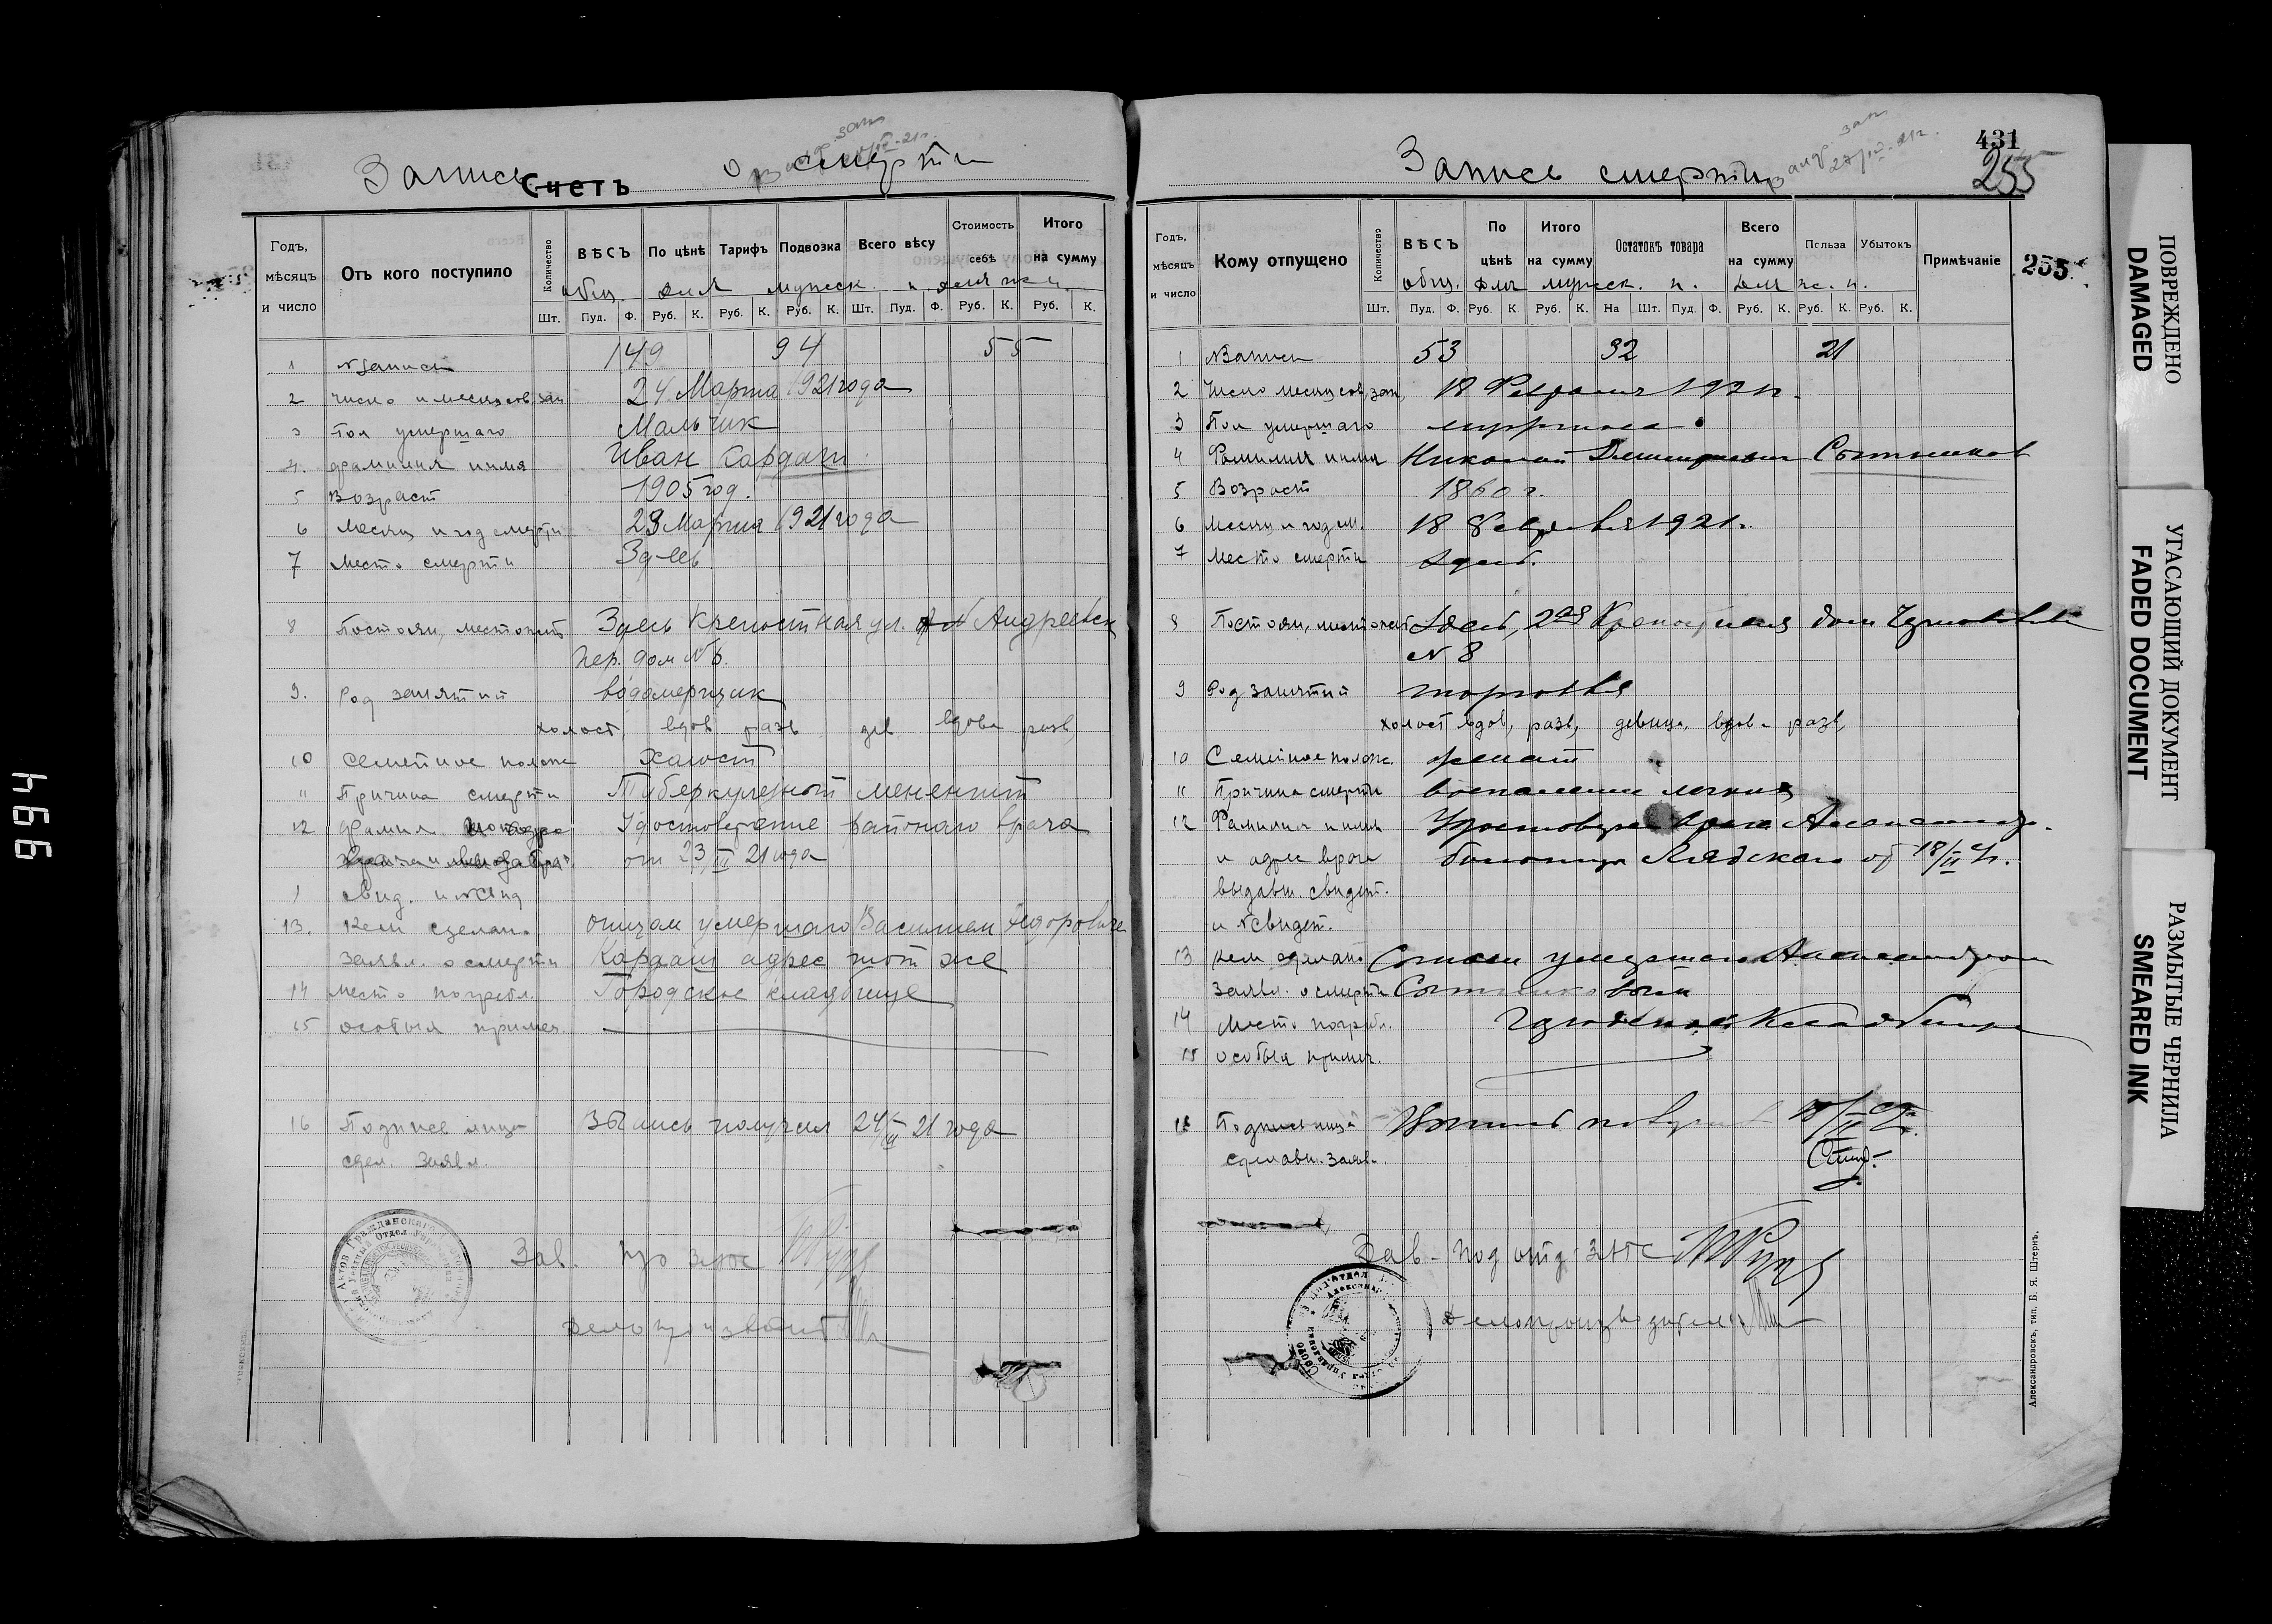 Запись Счетъ о смерти
Годъ, мѣсяцъ и число
Отъ кого поступило
Количество
ВѢСЪ
По цѣнѣ
Тарифъ
Подвозка
Всего вѣсу
Стоимость себѣ
Итого на сумму
общ. для мужск. п. для ж. п.
Шт. Пуд. Ф. Руб. К. Руб. К. Руб. К. Шт. Пуд. Ф. Руб. К. Руб. К.
1 №записи 149 94 55
2 число и месяц сов. зап 24 Марта 1921 года
3 Пол умершаго Мальчик
4. фамилия и имя Иван Кардаш
5 Возраст 1905 год.
6 Месяц и год смерти 23 Марта 1921 года
7 Место смерти Здесь
8 Постоян. местожит Здесь Крепостная ул.
пер. дом № 6.
9. Род занятий водомерщик
холост, вдов разв дев вдова разв,
10 Семейное полож Халост
11 Причина смерти Туберкулезный мененгит
12 Фамил. Удостоверение районаго врача
от 23/III 21 года
свид. и №
13. Кем сделан. отцом умершаго Василием Федорович
заявл. о смерти Кардаш адрес тот же
14 Место погребл. Городское кладбище
15 особыя примеч.
16 Подпись лица получил 24/III 21 года
сдел. заявл.
Зав. п/о загс
Делопроизвод
Запись смерти
431
255
Годъ, мѣсяцъ и число
Кому отпущено
Количество
ВѢСЪ
По цѣнѣ
Итого на сумму
Остатокъ товара
Всего на сумму
Польза
Убытокъ
Примѣчаніе
255
общ. для мужск. п. для ж. п.
Шт. Пуд. Ф. Руб. К Руб. К. На Шт. Пуд. Ф. Руб. К. Руб. К. Руб. К.
1 №записи 53 32 21
2 Число месяц сов, зап, 18 Февраля 1921 г.
3 Пол умершаго мужчина
4 Фамилия и имя Николай Дмитриевич Сотников
5 Возраст 1860 г.
6 Месяц и год см. 18 Февраля 1921 г.
7 Место смерти Здесь.
8 Постоян, местожит Здесь, 2ая Крепостная дом
№ 8
9 Род занятий торговля
холост вдов, разв, девица, вдова разв,
10 Семейное полож. женат
11 Причина смерти воспаление легких
12 Фамилия и имя Удостовер врача Александр.
и адрес врача больницы от 18/II 21 г.
выдавш. свидет.
и №свидет.
13 Кем сделано Сыном умершаго Александром
заявл. о смерти Сотниковым
14 Место погребл. Городское Кладбище
15 особыя примеч.
16 Подпись лица
сделавш. заявл.
Зав. Под отд. ЗАГС
Делопроизводитель
Александровскъ, тип. Б. Я. Штернъ.
ПОВРЕЖДЕНО
DAMAGED
УГАСАЮЩИЙ ДОКУМЕНТ
FADED DOCUMENT
РАЗМЫТЫЕ ЧЕРНИЛА
SMEARED INK
994